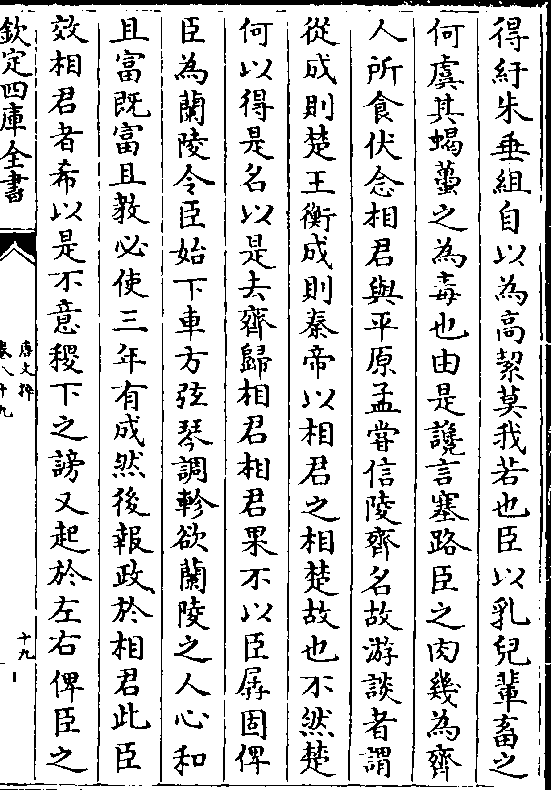 得紆朱垂組自以為高絜莫我若也臣以乳兒輩畜之
何虞其蝎蠆之為毒也由是讒言塞路臣之肉幾為齊
人所食伏念相君與平原孟嘗信陵齊名故游談者謂
從成則楚王衡成則秦帝以相君之相楚故也不然楚
何以得是名以是去齊歸相君相君果不以臣孱固俾
臣為蘭陵令臣始下車方弦琴調軫欲蘭陵之人心和
且富既富且教必使三年有成然後報政於相君此臣
效相君者希以是不意稷下之謗又起於左右俾臣之
欽定四庫全書
唐文粹
卷八十九
十九